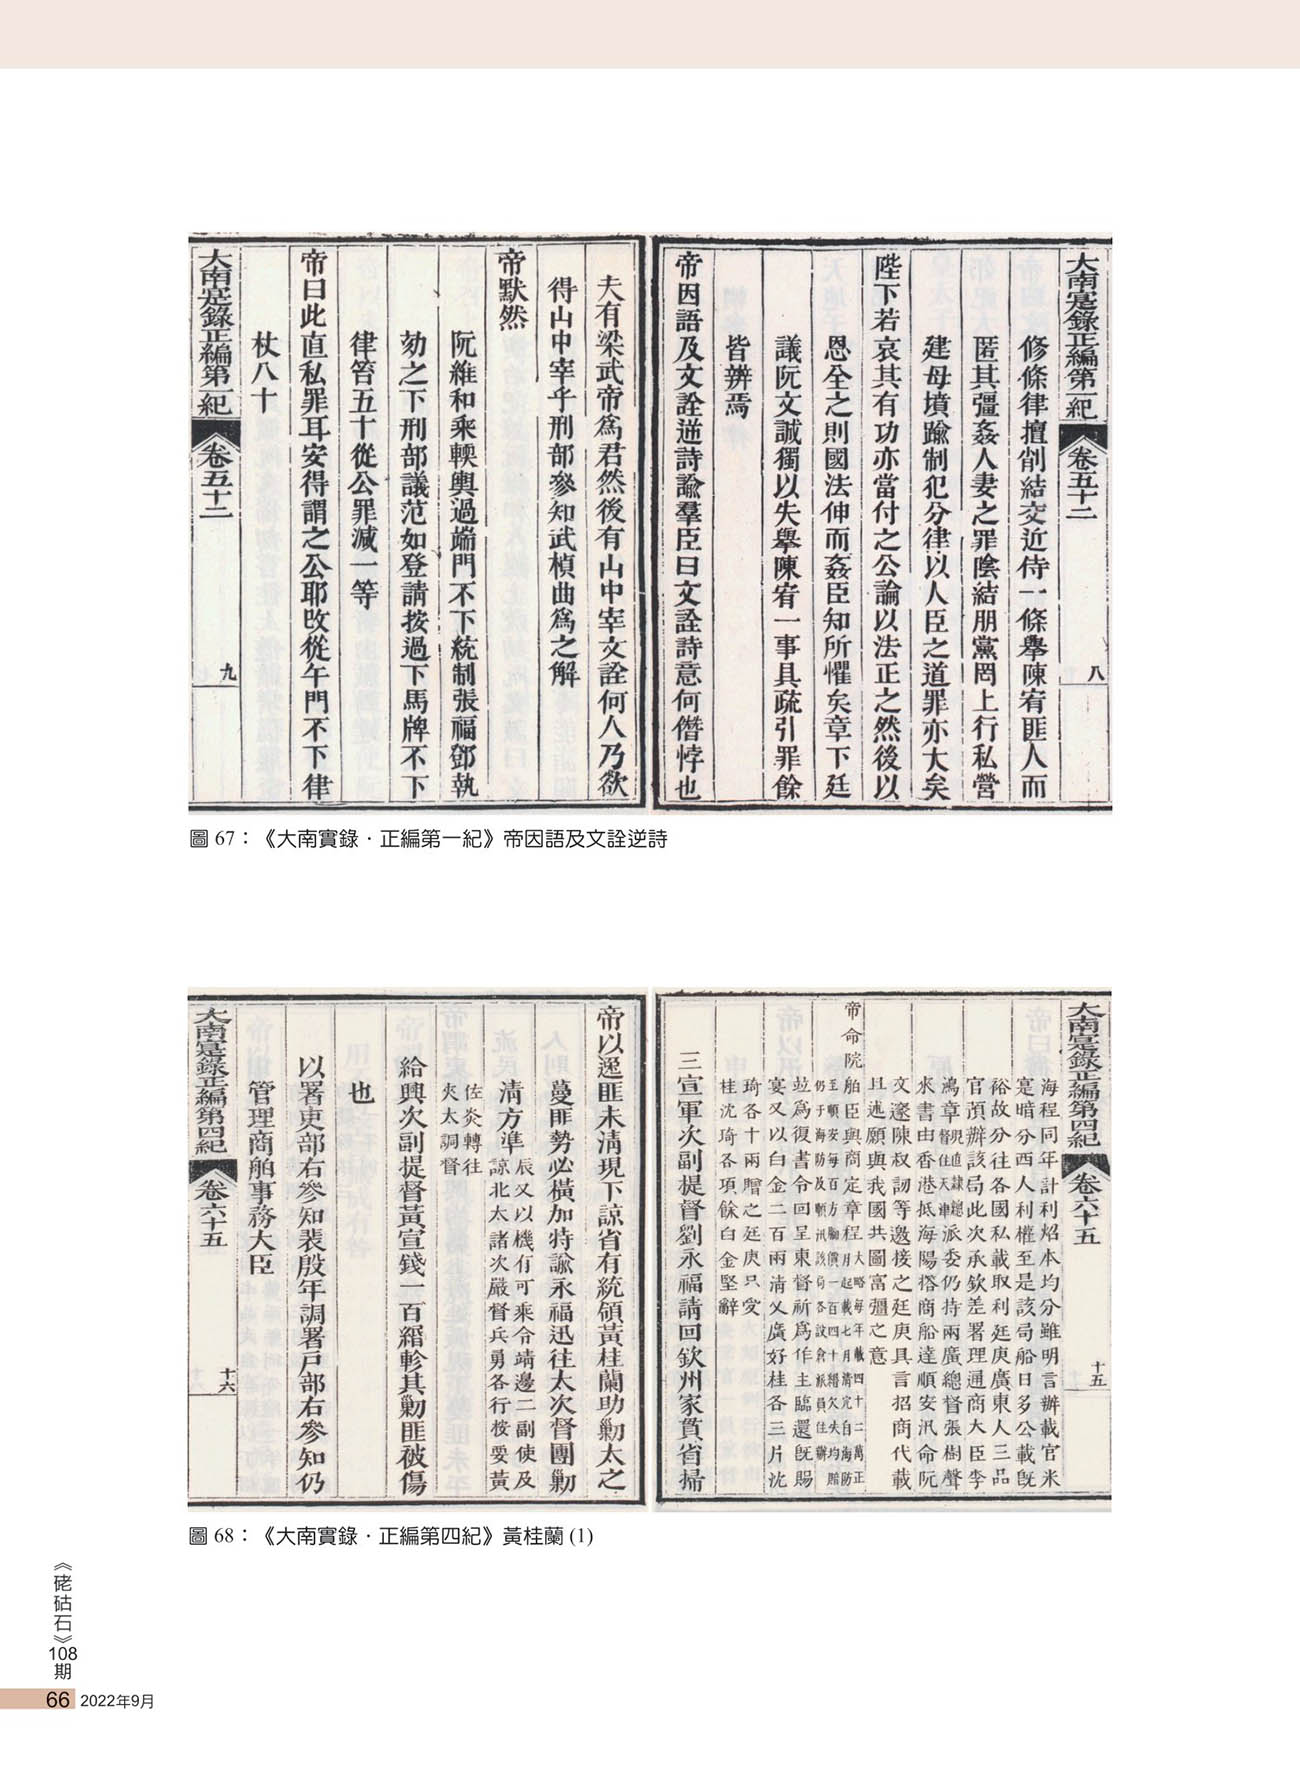 大南寔錄正編第一紀 卷五十二 八
修條律擅削結交近侍一條舉陳宥匪人而
匿其彊姦人妻之罪陰結朋黨罔上行私營
建母墳踰制犯分律以人臣之道罪亦大矣
陛下若哀其有功亦當付之公論以法正之然後以
恩全之則國法伸而姦臣知所懼矣章下廷
議阮文誠獨以失舉陳宥一事具疏引罪餘
皆辨焉
帝因語及文詮逆詩諭羣臣曰文詮詩意何僭悖也
夫有梁武帝爲君然後有山中宰文詮何人乃欲
得山中宰乎刑部參知武楨曲爲之解
帝默然
阮維和乘輭輿過端門不下統制張福鄧執
劾之下刑部議范如登請按過下馬牌不下
律笞五十從公罪減一等
帝曰此直私罪耳安得謂之公耶改從午門不下律
杖八十
大南寔錄正編第一紀 卷五十二 九
圖 67：《大南實錄．正編第一紀》帝因語及文詮逆詩
大南寔錄正編第四紀 卷六十五 十五
海程同年計利焰本均分雖明言辦載官米
寔暗分西人利權至是該局船日多公載旣
裕故分往各國私載取利廷庚廣東人三品
官頂辦該局此次承欽差署理通商大臣李
鴻章督住天津派委仍持兩廣總督張樹聲
來書由香港抵海陽搭商船達順安汛命阮
文邃陳叔訒等邀接之廷庚具言招商代載
且述願與我國共圖富彊之意
帝命院舶臣與商定章程大略每年載四十二萬正月起載七月清完自海防
至順安每百方腳價一百四十緡欠失均賠仍于海防及順汛該局各設倉派員住辦
竝爲復書令回呈東督祈爲作主臨還旣賜
宴又以白金二百兩清乂廣好桂各三片沈
琦各十兩贈之廷庚只受
桂沈琦各項餘白金堅辭
三宣軍次副提督劉永福請回欽州家貫省掃
帝以逸匪未清現下諒省有統領黃桂蘭助勦太之
蔓匪勢必橫加特諭永福迅往太次督團勦
清方準辰又以機有可乘令靖邊二副使及
諒北太諸次嚴督兵勇各行按要黃
佐炎轉往
夾太調督
給興次副提督黃宣錢一百緡軫其勦匪被傷
也
以署吏部右參知裴殷年調署戶部右參知仍
管理商舶事務大臣
大南寔錄正編第四紀 卷六十五 十六
圖 68：《大南實錄．正編第四紀》黃桂蘭 (1)
《硓𥑮石》108期
66 2022年9月